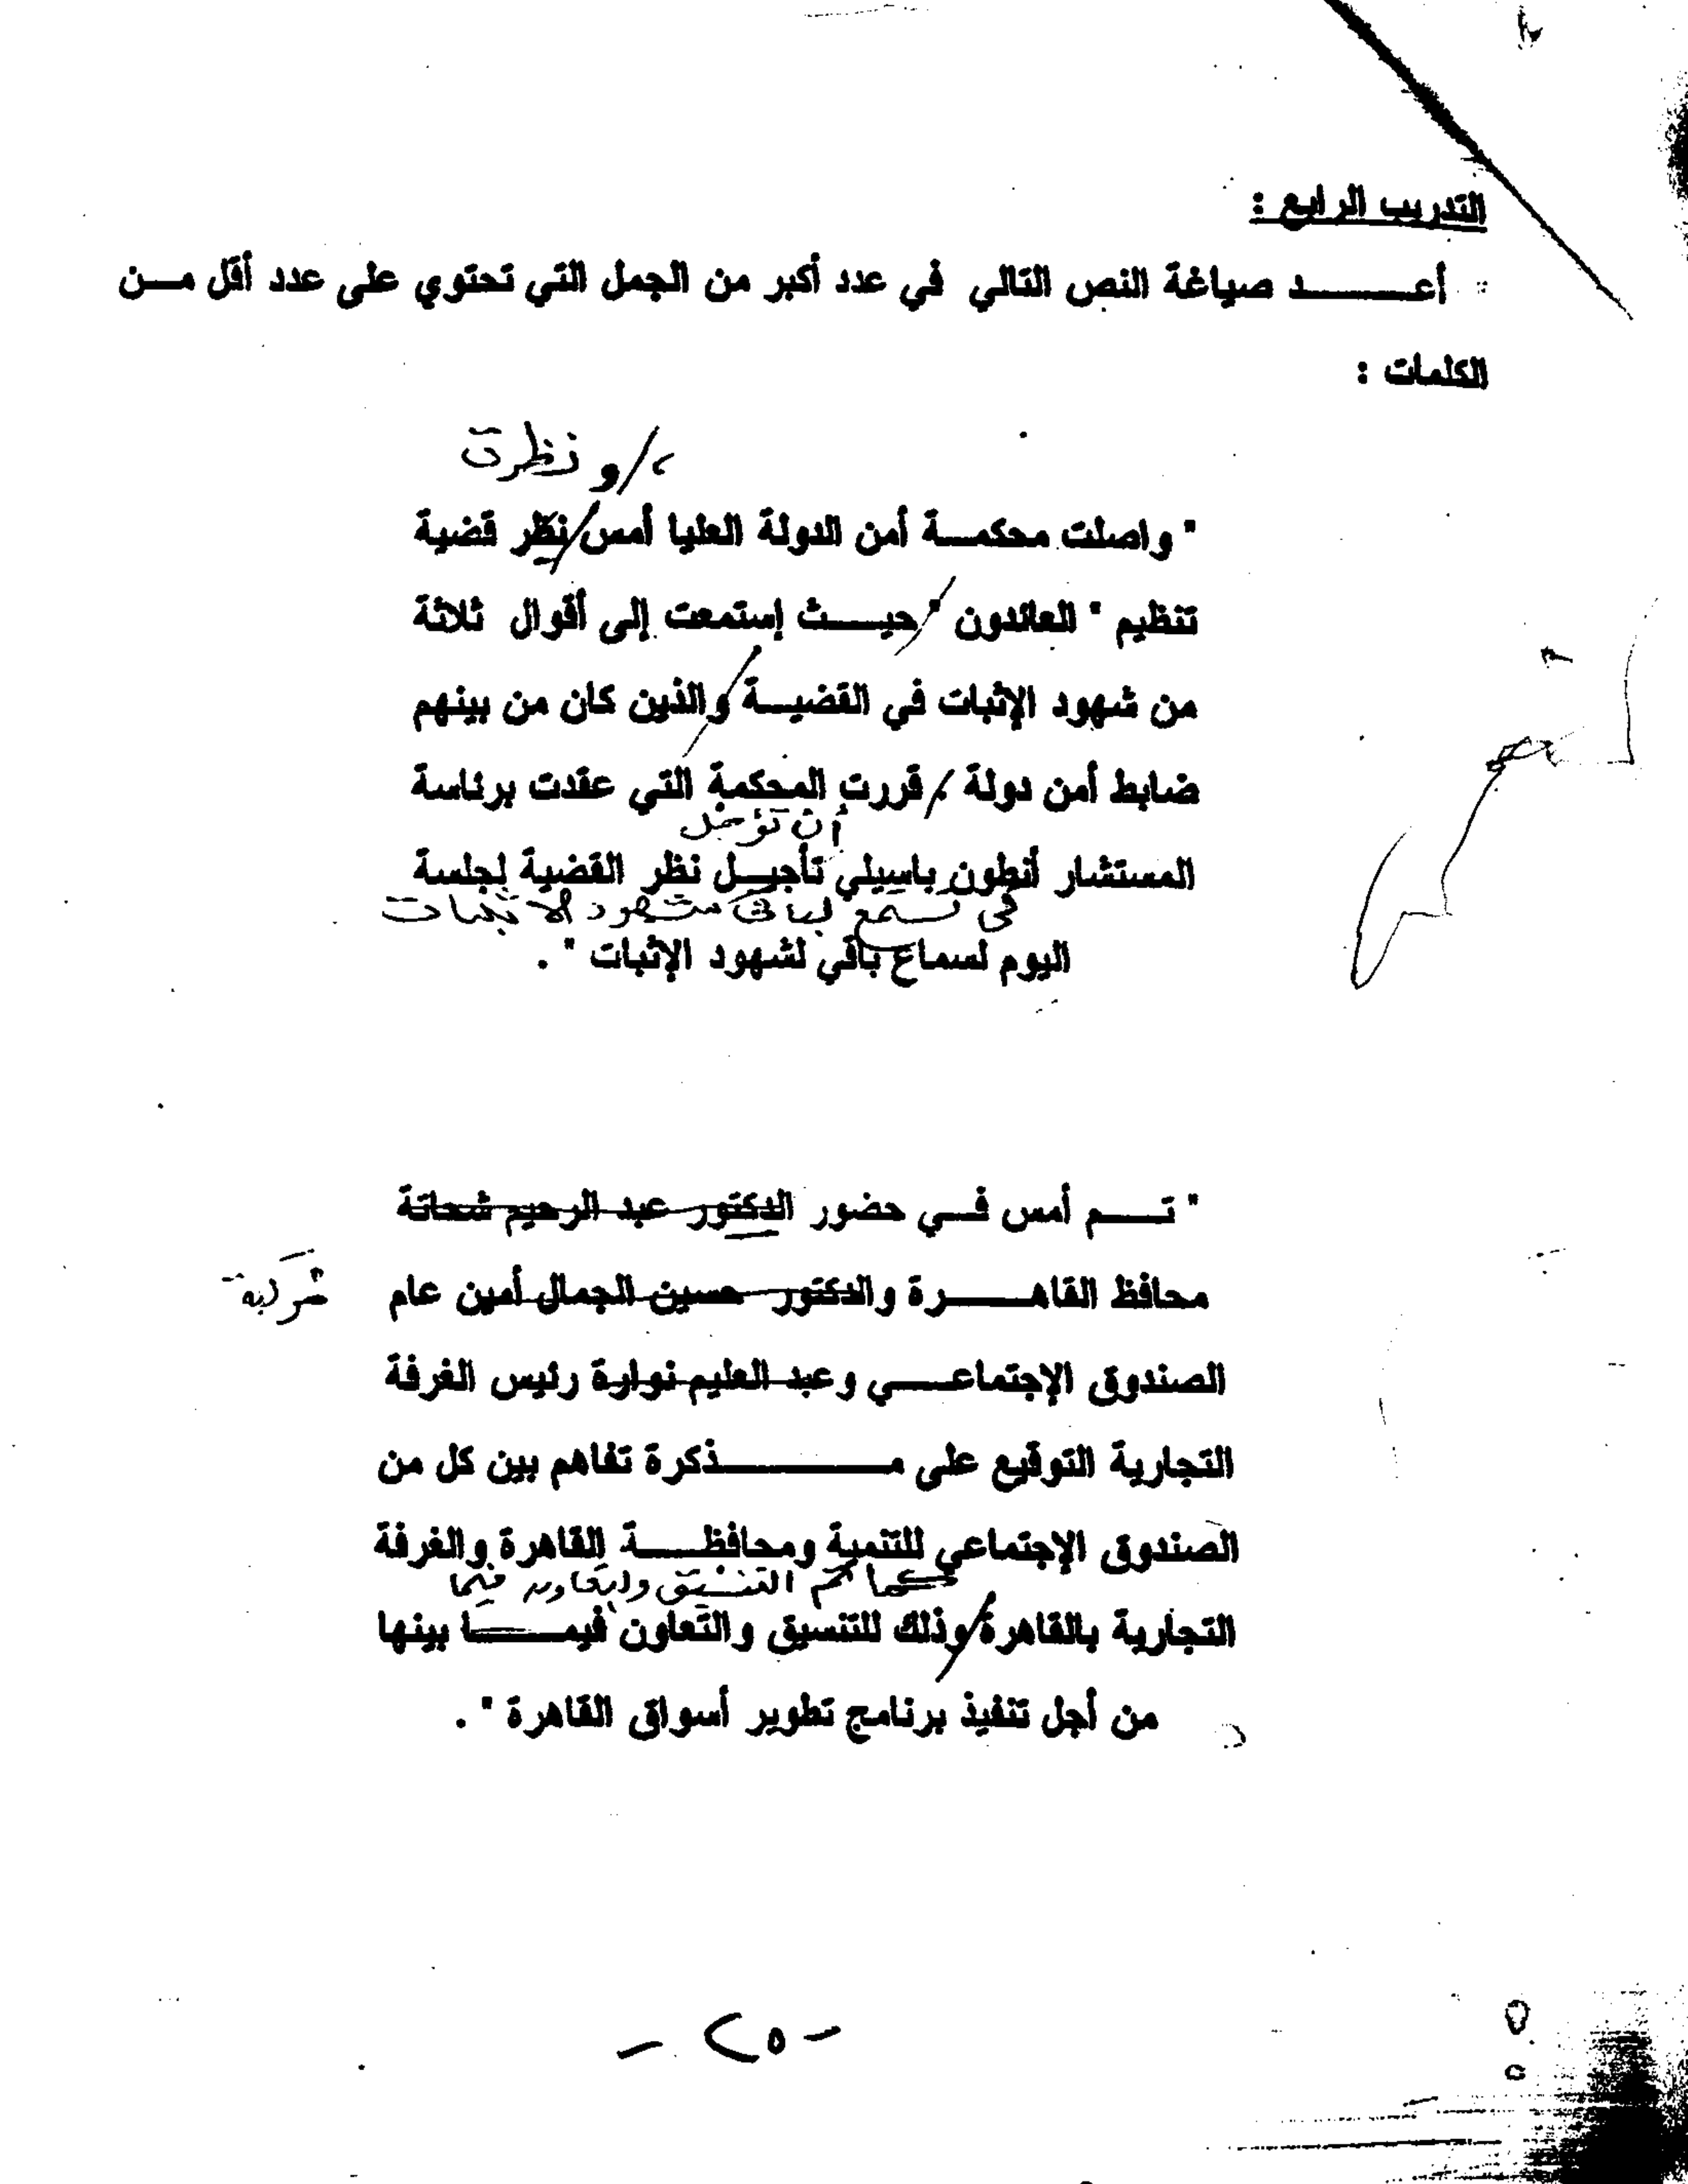 التدريب الرابع :
أعد صياغة النص التالي في عدد أكبر من الجمل التي تحتوي على عدد أقل من
الكلمات :
، / و نظرت
" واصلت محكمة أمن الدولة العليا أمس / نظر قضية
تنظيم " العائدون " / حيث إستمعت إلى أقوال ثلاثة
من شهود الإثبات في القضية / والذين كان من بينهم
ضابط أمن دولة / قررت المحكمة التي عقدت برئاسة
أن تؤجل
المستشار أنطون باسيلي تأجيل نظر القضية لجلسة
شهود الاثبات
اليوم لسماع باقي لشهود الإثبات " .
" تم أمس في حضور الدكتور عبد الرحيم شحاتة
محافظ القاهرة والدكتور حسين الجمال أمين عام
الصندوق الإجتماعي وعبد العليم نوارة رئيس الغرفة
التجارية التوقيع على مذكرة تفاهم بين كل من
الصندوق الإجتماعي للتنمية ومحافظة القاهرة والغرفة
كما تم التنسيق والتعاون فيما
التجارية بالقاهرة / وذلك للتنسيق والتعاون فيما بينها
من أجل تنفيذ برنامج تطوير أسواق القاهرة " .
- ٢٥ -